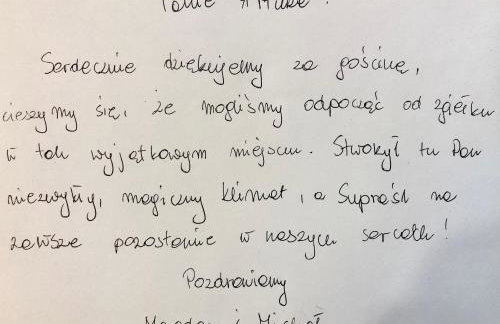 Serdecznie dziękujemy za gościnę,
cieszymy się, że mogliśmy odpocząć od zgiełku
w tak wyjątkowym miejscu. Stworzył tu Pan
niezwykły, magiczny klimat, a Supraśl na
zawsze pozostanie w naszych sercach!
Pozdrawiamy